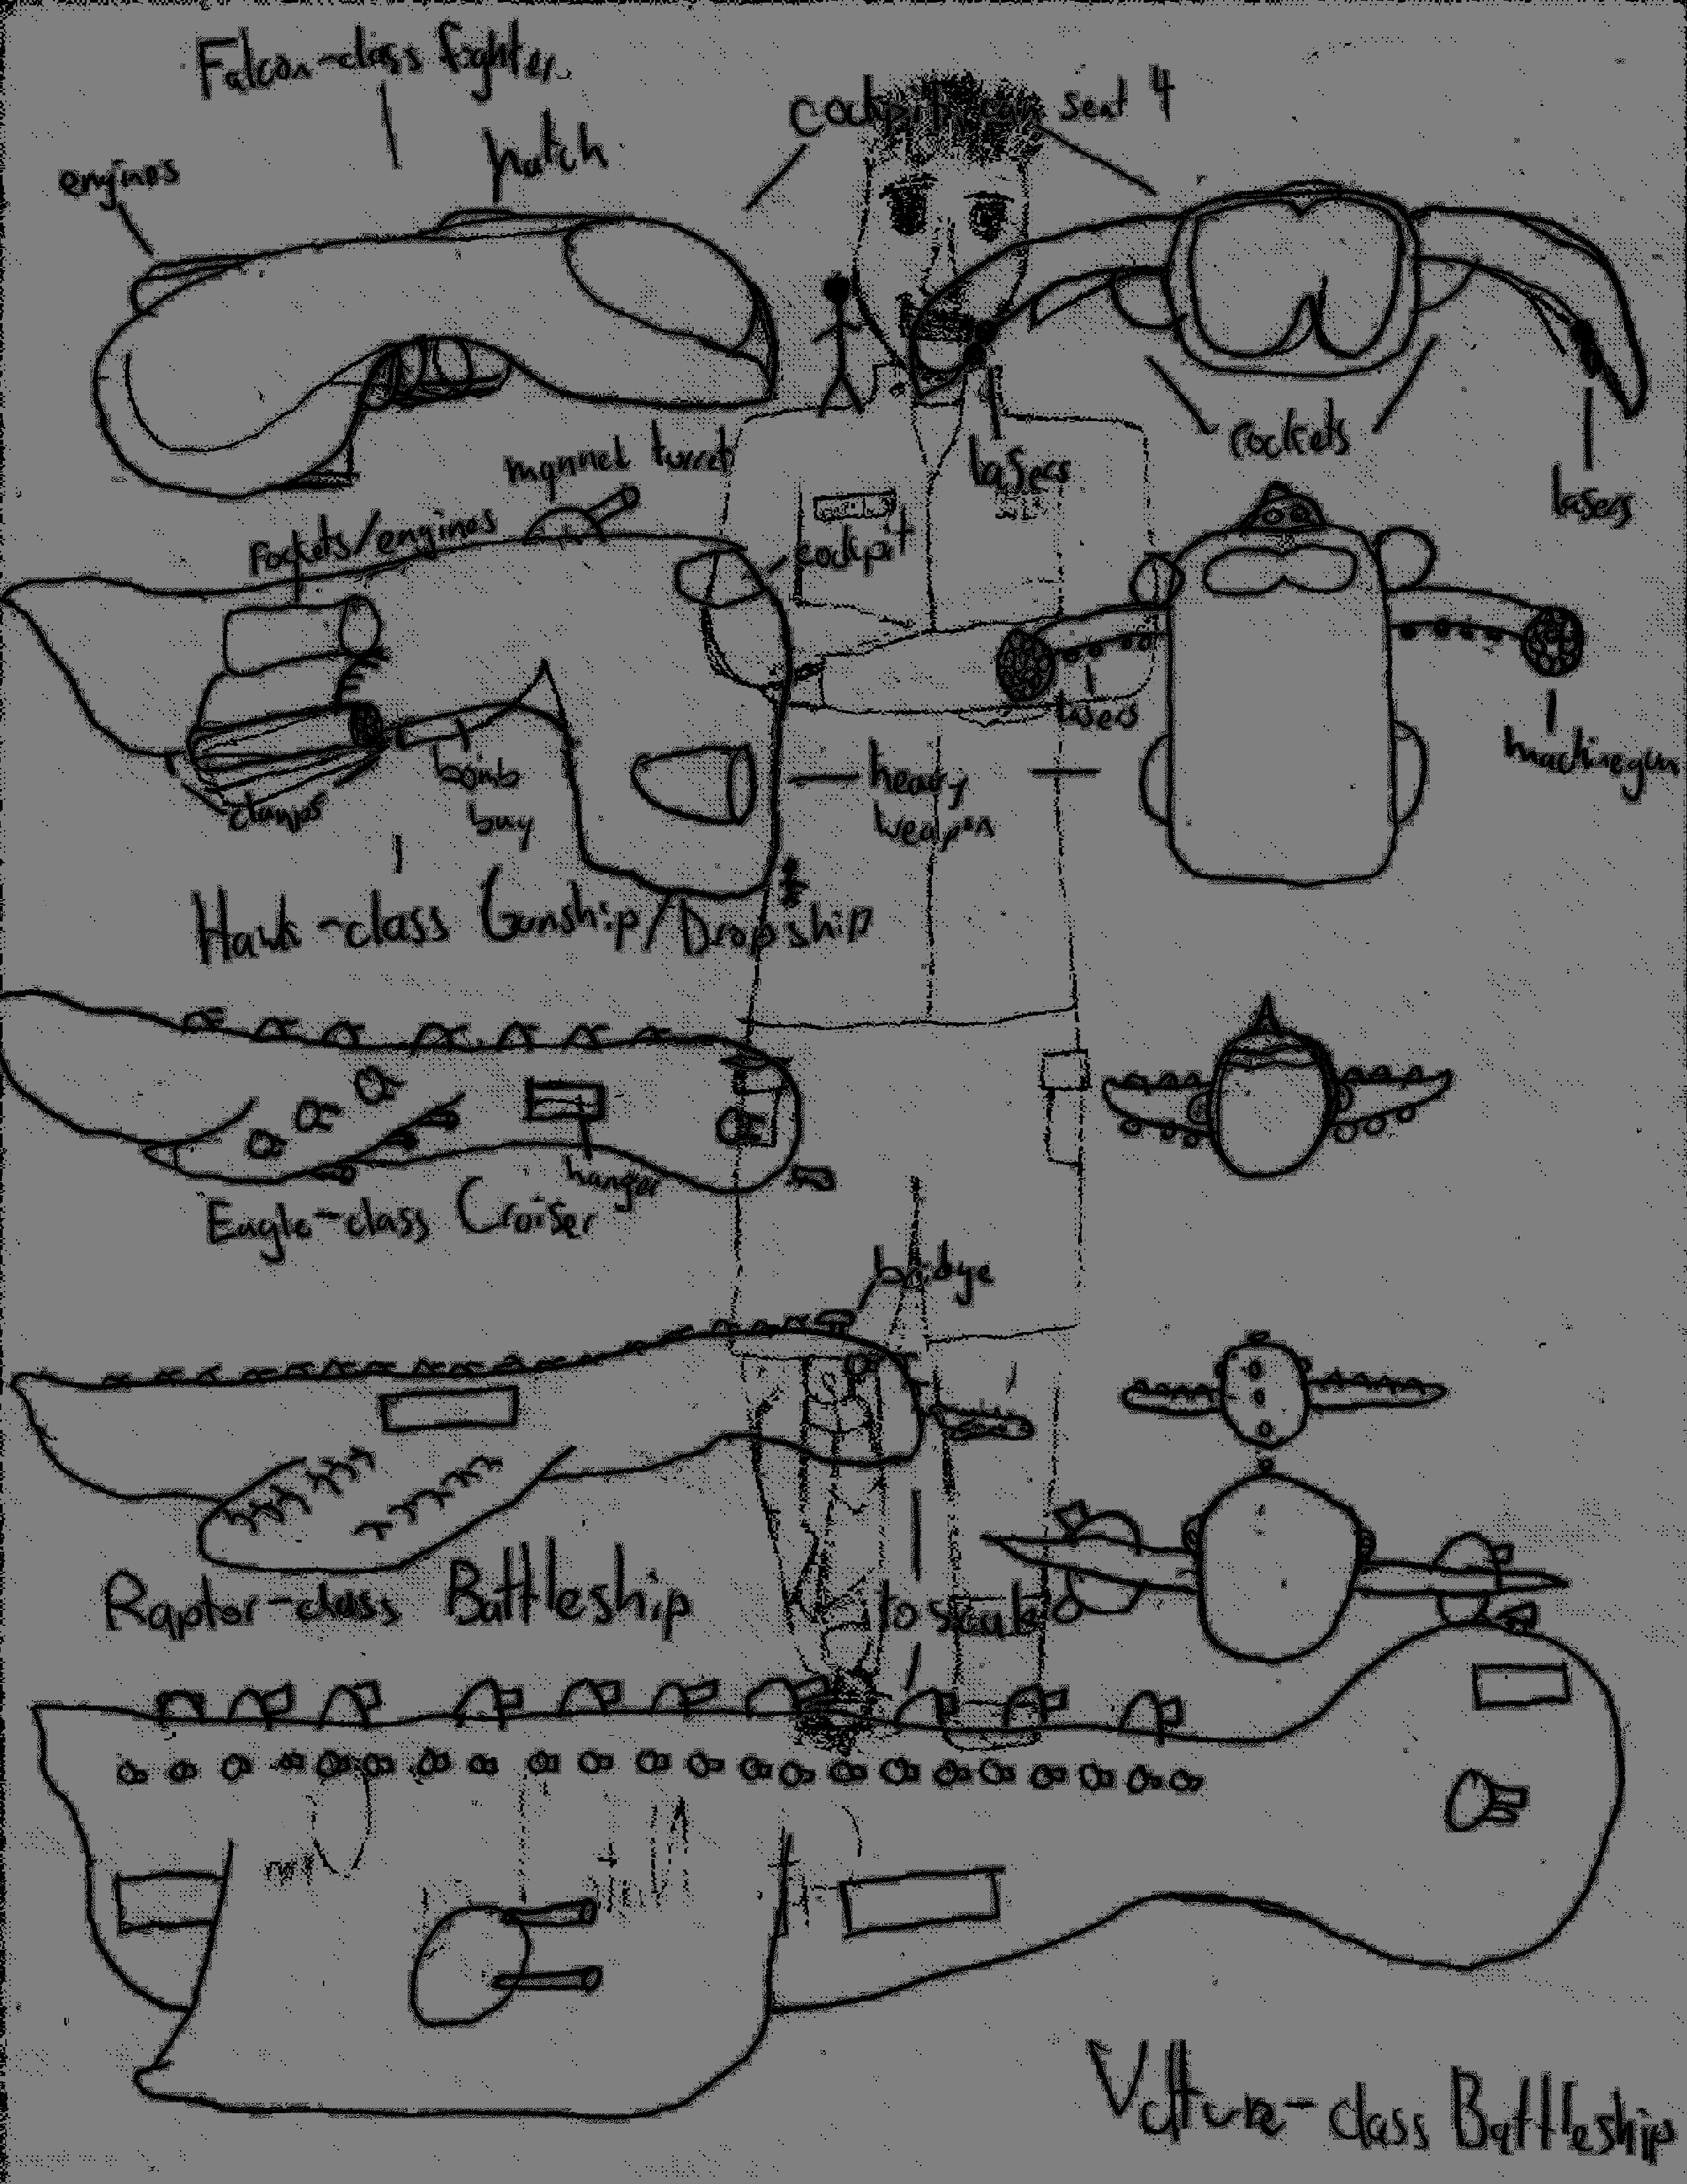 Falcon-class fighter
cockpit can seat 4
hatch
engines
rockets
lasers
lasers
manned turret
rockets/engines
cockpit
lasers
machinegun
bomb
bay
clamps
heavy
weapon
Hawk-class Gunship/Dropship
hanger
Eagle-class Cruiser
bridge
Raptor-class Battleship
to scale
Vulture-class Battleship